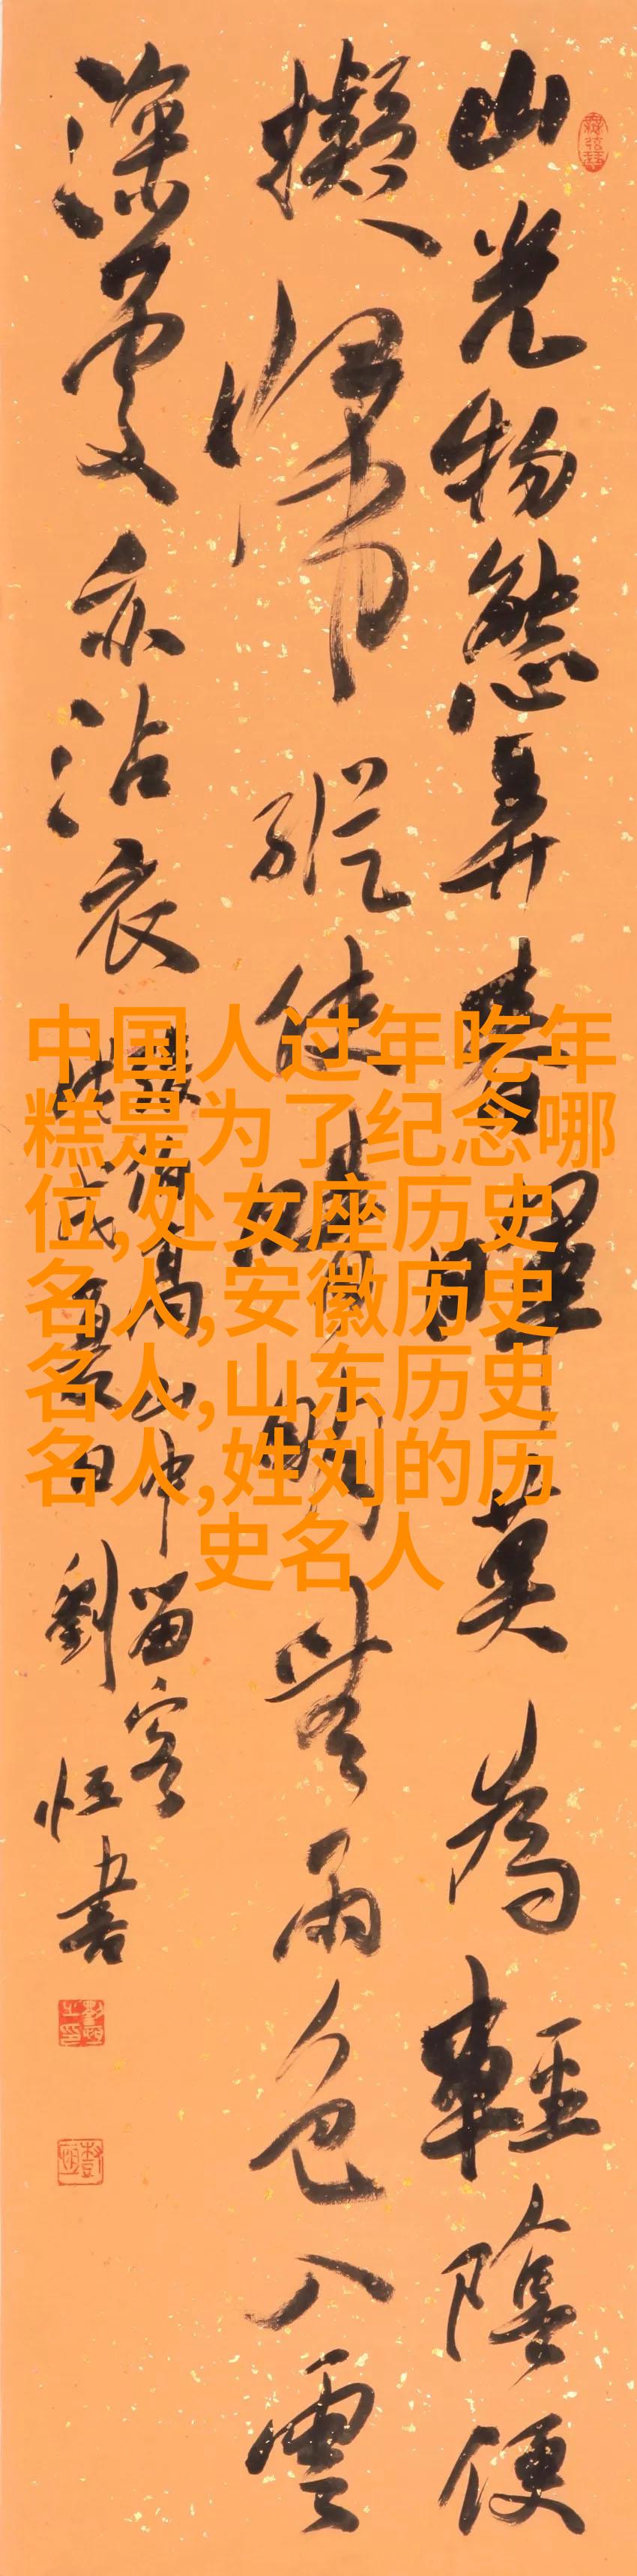 山光物態弄春暉莫為輕陰便
擬歸縱使晴明無雨色入雲
深處亦沾衣
山中留客
劉恒書
中国人过年吃年
糕是为了纪念哪
位,处女座历史
名人,安徽历史
名人,山东历史
名人,姓刘的历
史名人